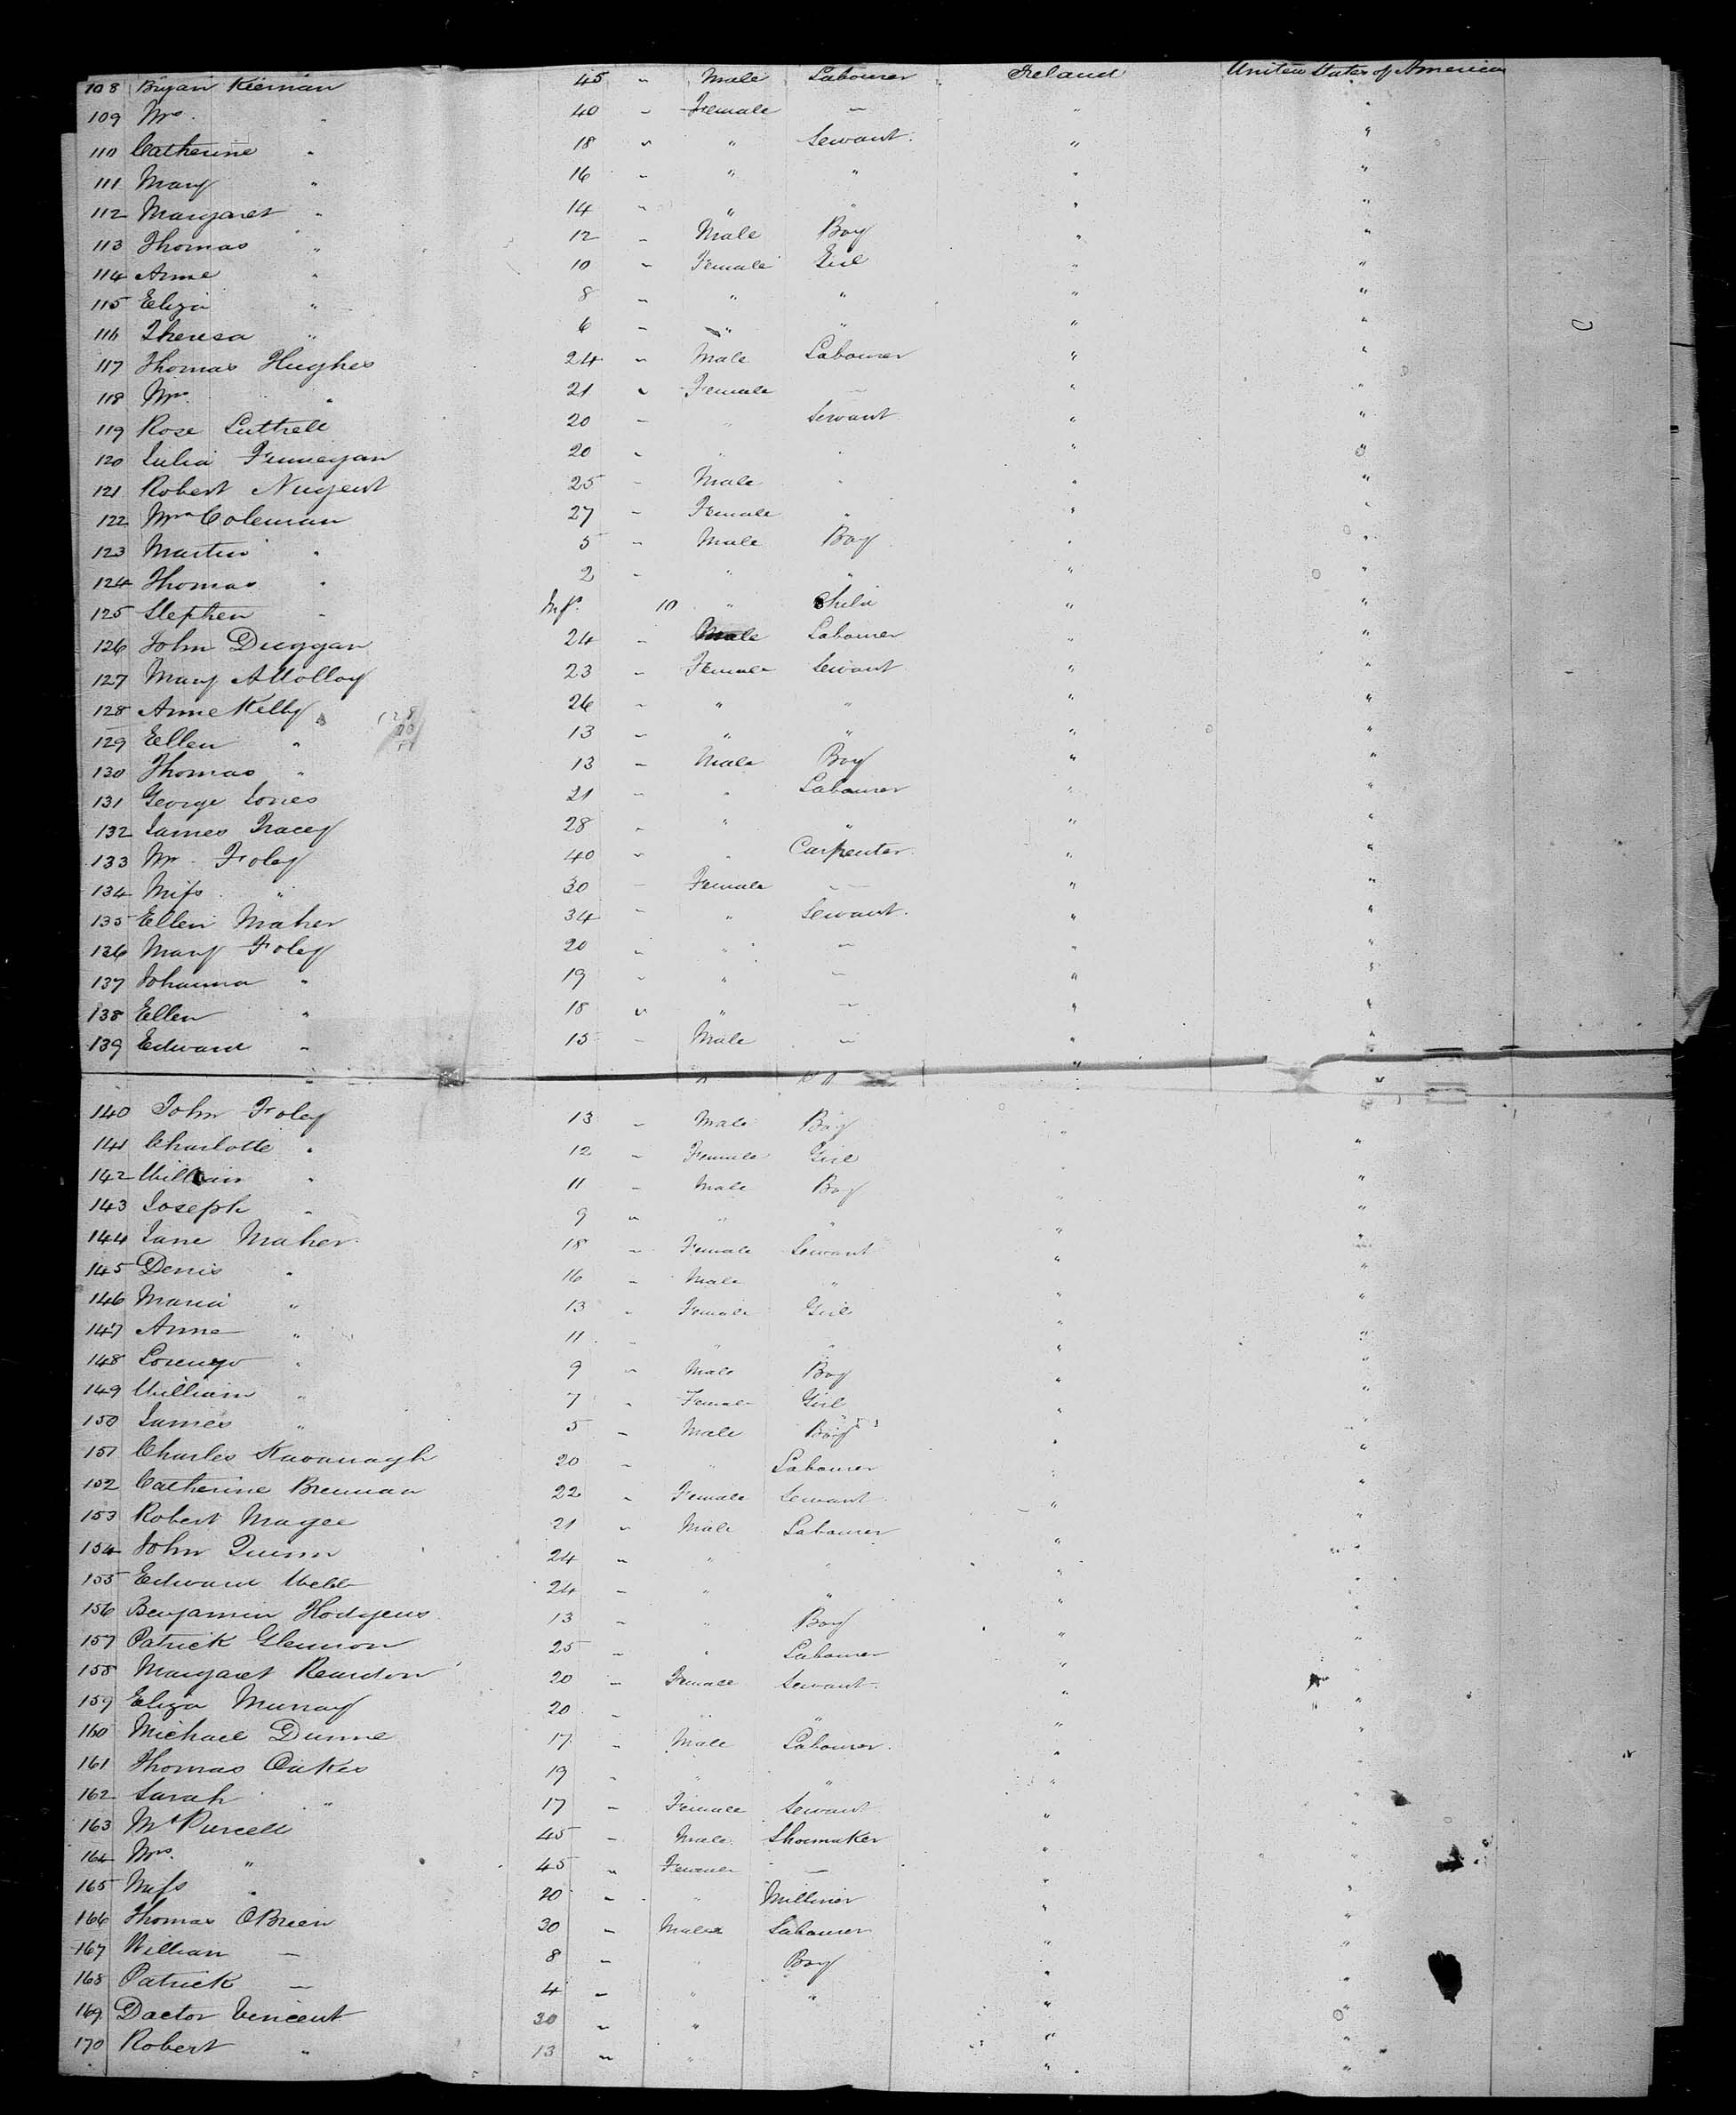 108 Bryan Kiernan 45 " Male Labourer Ireland United States of America
109 Mrs. " 40 " Female — " "
110 Catherine " 18 " " Servant. " "
111 Mary " 16 " " " " "
112 Margaret " 14 " " " " "
113 Thomas " 12 " Male Boy " "
114 Anne " 10 " Female Girl " "
115 Eliza " 8 " " " " "
116 Theresa " 6 " " " " "
117 Thomas Hughes 24 " Male Labourer " "
118 Mrs. " 21 " Female — " "
119 Rose Luttrell 20 " " Servant " "
120 Julia Finnegan 20 " " " " "
121 Robert Nugent 25 " Male " " "
122 Mrs Coleman 27 " Female " " "
123 Martin " 5 " Male Boy " "
124 Thomas " 2 " " " " "
125 Stephen " Inft. 10 " Child " "
126 John Duggan 24 " Male Labourer " "
127 Mary AMolloy 23 " Female Servant " "
128 Anne Kelly 26 " " " " "
129 Ellen " 13 " " " " "
130 Thomas " 13 " Male Boy " "
131 George Jones 21 " " Labourer " "
132 James Tracey 28 " " " " "
133 Mr. Foley 40 " " Carpenter " "
134 Miss " 30 " Female — " "
135 Ellen Maher 34 " " Servant. " "
136 Mary Foley 20 " " — " "
137 Johanna " 19 " " — " "
138 Ellen " 18 " " — " "
139 Edward " 15 " Male — " "
140 John Foley 13 " Male Boy " "
141 Charlotte " 12 " Female Girl " "
142 William " 11 " Male Boy " "
143 Joseph " 9 " " " " "
144 Jane Maher 18 " Female Servant " "
145 Denis " 16 " Male " " "
146 Maria " 13 " Female Girl " "
147 Anne " 11 " " " " "
148 Lorenzo " 9 " Male Boy " "
149 William " 7 " Female Girl " "
150 James " 5 " Male Boy " "
151 Charles Kavanagh 20 " " Labourer " "
152 Catherine Brennan 22 " Female Servant " "
153 Robert Magee 21 " Male Labourer " "
154 John Quinn 24 " " " " "
155 Edward Webb 24 " " " " "
156 Benjamin Hodgens 13 " " Boy " "
157 Patrick Glennon 25 " " Labourer " "
158 Margaret Reardon 20 " Female Servant " "
159 Eliza Murray 20 " " " " "
160 Michael Dunne 17 " Male Labourer. " "
161 Thomas Oakes 19 " " " " "
162 Sarah " 17 " Female Servant " "
163 Mr Purcell 45 " Male Shoemaker " "
164 Mrs. " 45 " Female — " "
165 Miss " 20 " " Milliner " "
166 Thomas OBrien 30 " Male Labourer " "
167 William — 8 " " Boy " "
168 Patrick — 4 " " " " "
169 Doctor Vincent 30 " " " "
170 Robert " 13 " " " "